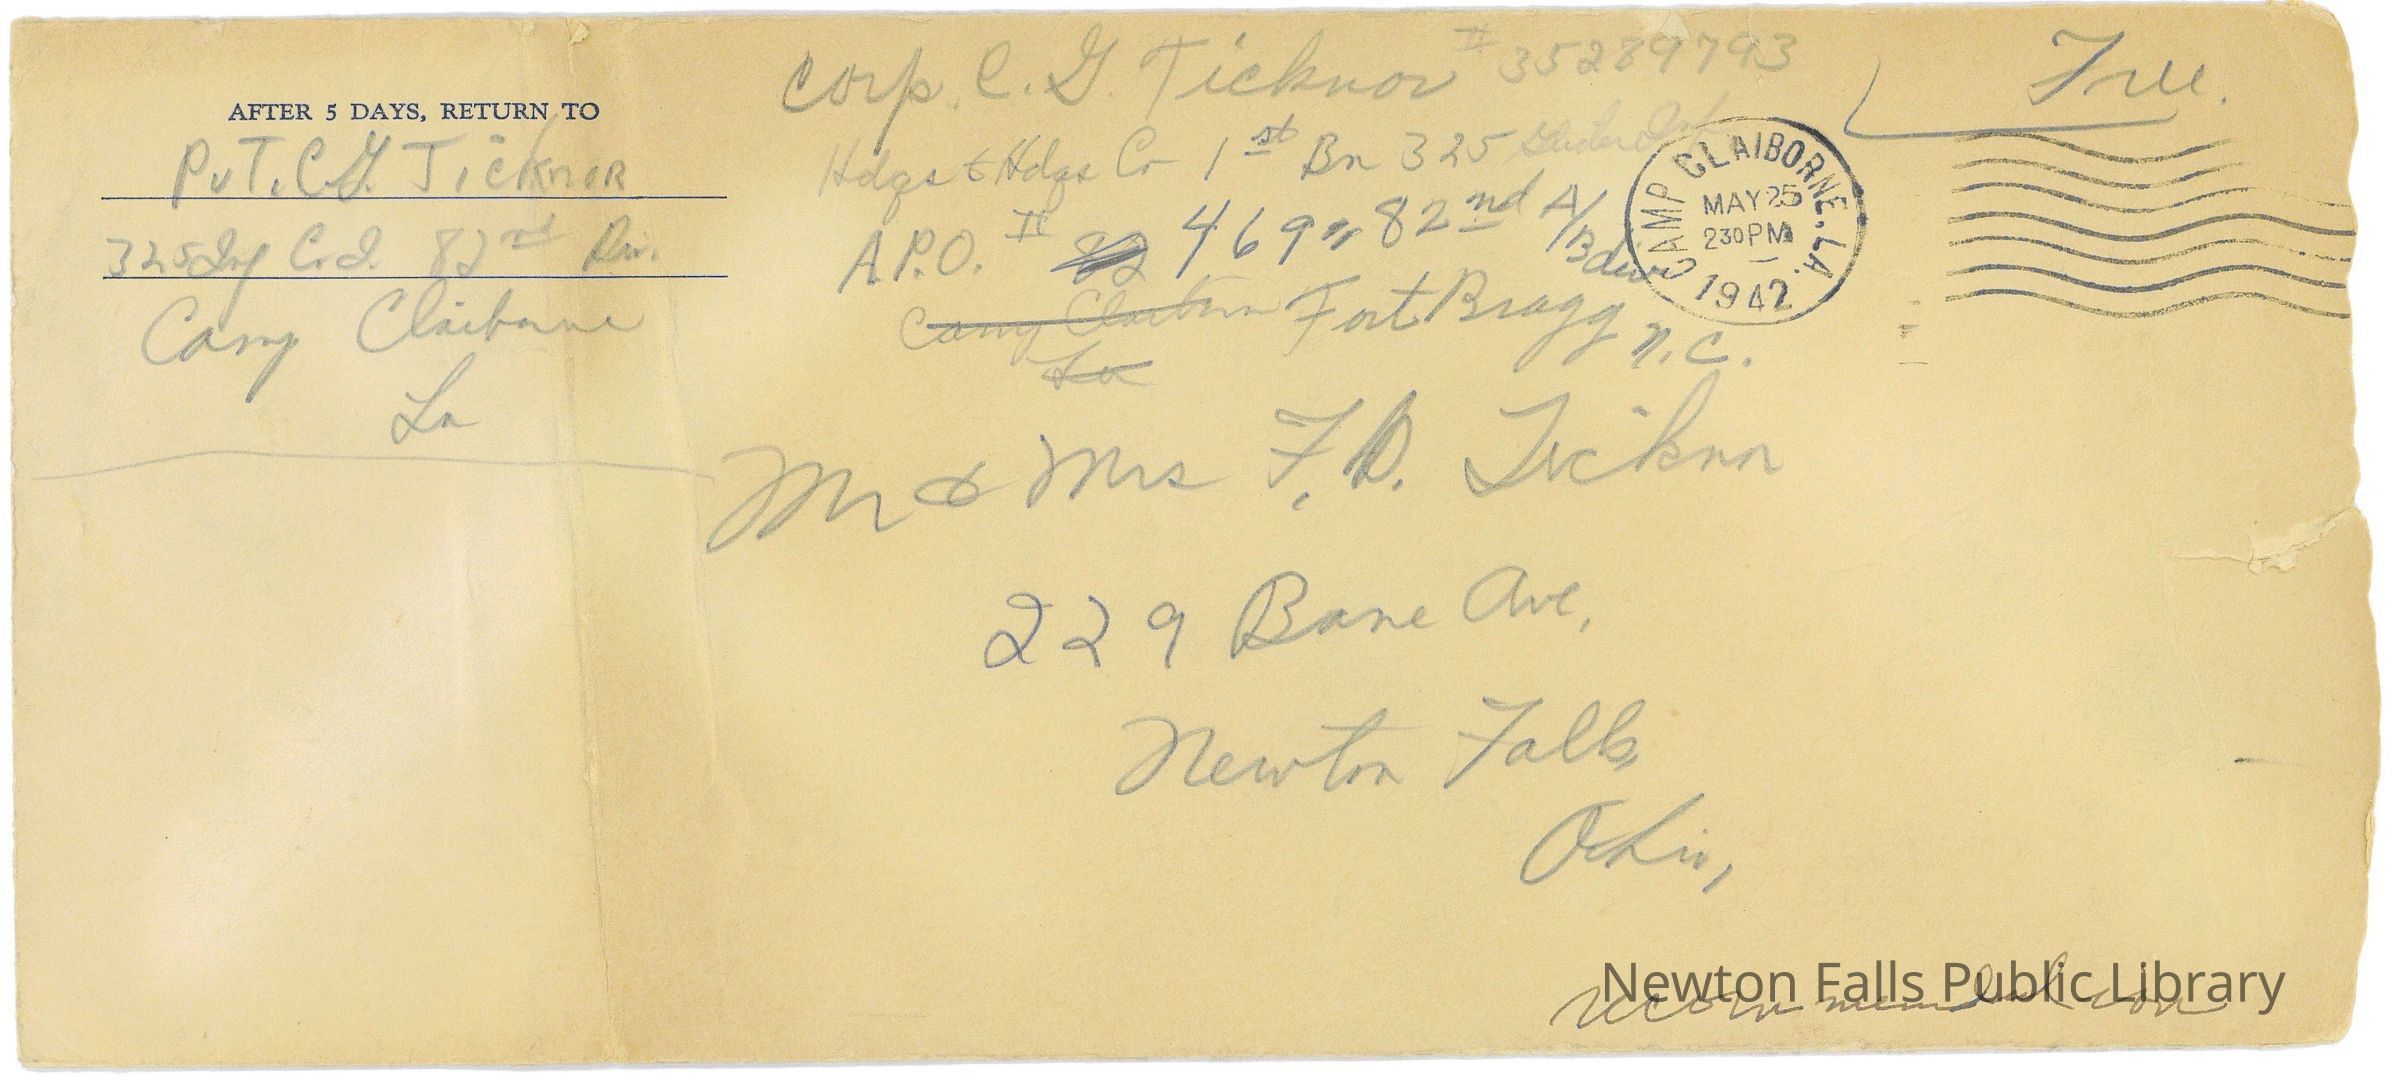 AFTER 5 DAYS, RETURN TO
PvT. C.G. Ticknor
325 Inf Co. I. 82nd Div.
Camp Claiborne
La
Corp. C. G. Ticknor # 35289793
Hdqs & Hdqs Co 1st Bn 325 Glider Inf
A.P.O. # 82 469 82nd A/B div
Camp Claiborne Fort Bragg N.C.
La
Free.
CAMP CLAIBORNE, LA.
MAY 25
230 PM
1942
Mr & Mrs F. D. Ticknor
229 Bane Ave,
Newton Falls,
Ohio,
Newton Falls Public Library
recommendation